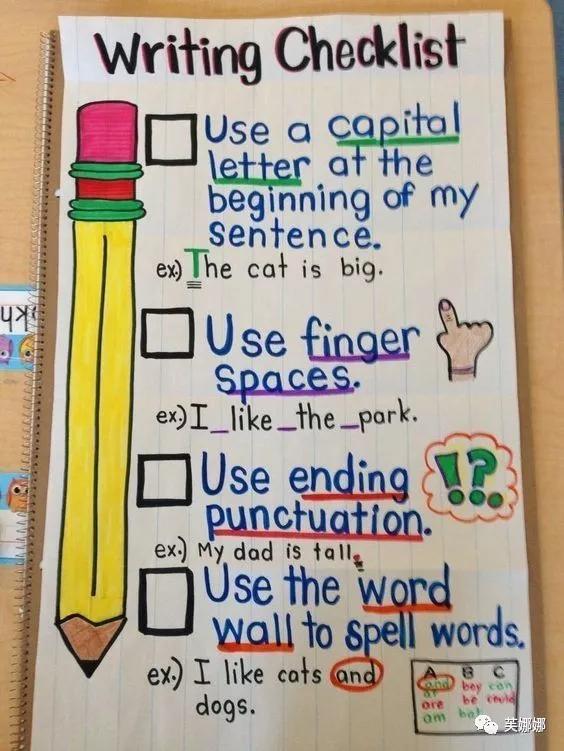 Writing Checklist
Use a capital
letter at the
beginning of my
sentence.
ex.) The cat is big.
Use finger
spaces.
ex.) I_like_the_park.
Use ending
punctuation.
!?.
ex.) My dad is tall.
Use the word
wall to spell words.
ex.) I like cats and
dogs.
A B C
and boy can
are be could
am
芙娜娜